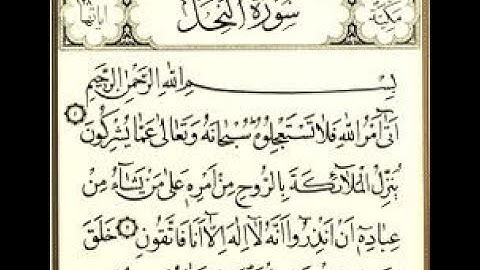 مكية سورة النحل آياتها
بِسْمِ اللهِ الرَّحْمٰنِ الرَّحِيمِ
اَتٰىٓ اَمْرُ اللهِ فَلَا تَسْتَعْجِلُوهُ سُبْحَانَهُ وَتَعَالٰى عَمَّا يُشْرِكُونَ
يُنَزِّلُ الْمَلَٓائِكَةَ بِالرُّوحِ مِنْ اَمْرِهٖ عَلٰى مَنْ يَشَٓاءُ مِنْ
عِبَادِهٖٓ اَنْ اَنْذِرُٓوا اَنَّهُ لَٓا اِلٰهَ اِلَّٓا اَنَا فَاتَّقُونِ خَلَقَ